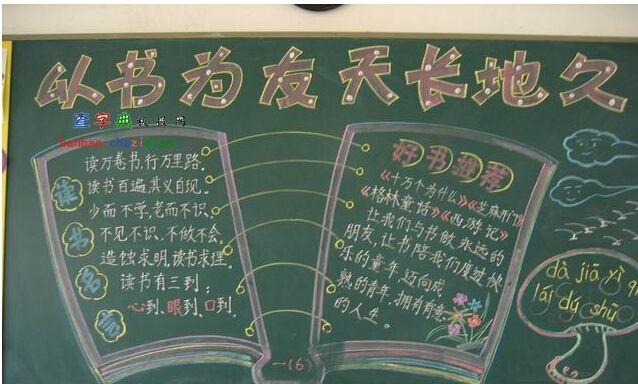 以书为友天长地久
查字典板报网
banbao.chazidian
读书名言
读万卷书,行万里路。
读书百遍,其义自现。
少而不学,老而不识。
不见不识,不做不会。
造蚀求明,读书求理。
读书有三到:
心到、眼到、口到。
好书推荐
《十万个为什么》《芝麻开门》
《格林童话》《西游记》
让我们与书做永远的
朋友,让书陪我们度过快
乐的童年,迈向成
熟的青年,拥有有意
的人生。
一(6)
dà jiā yì q
lái dú shū